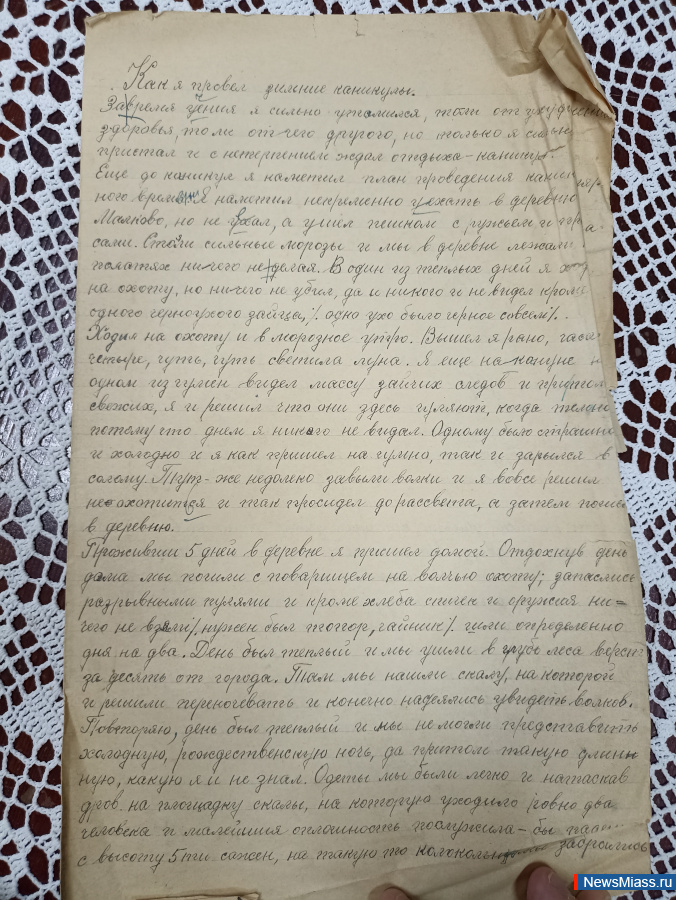 Как я провел зимние каникулы.
За время учения я сильно утомился, то ли от ухудшения
здоровья, то ли от чего другого, но только я сильно
пристал и с нетерпением ждал отдыха-каникул.
Еще до каникул я наметил план проведения
ного времени. Я наметил непременно уехать в деревню
Малково, но не ехал, а ушел пешком с ружьем и
сами. Стояли сильные морозы и мы в деревне лежали
полатях ничего не делая. В один из теплых дней я
на охоту, но ничего не убил, да и никого и не видел кроме
одного черноухого зайца, /. одно ухо было черное совсем /.
Ходил на охоту и в морозное утро. Вышел я рано, часа
четыре, чуть, чуть светила луна. Я еще на кануне
одном из гумен видел массу зайчих следов и притом
свежих, я и решил что они здесь гуляют, когда
потому что днем я никого не видал. Одному было страшно
и холодно и я как пришел на гумно, так и зарылся в
солому. Тут-же недолго завыли волки и я вовсе решил
не охотиться и так просидел до рассвета, а затем пошел
в деревню.
Проживши 5 дней в деревне я пришел домой. Отдохнув день
дома мы пошли с товарищем на волчью охоту; запаслись
разрывными пулями и кроме хлеба спичек и оружия ни=
чего не взяли /. нужен был топор, чайник /. шли определенно
дня на два. День был теплый и мы ушли в глубь леса верст
за десять от города. Там мы нашли скалу, на которой
и решили переночевать и конечно надеялись увидеть волков.
Повторяю, день был теплый и мы не могли представить
холодную, рождественскую ночь, да притом такую длин
ную, какую я и не знал. Одеты мы были легко и натаскав
дров на площадку скалы, на которую уходило ровно два
человека и малейшия оплошность послужила-бы
с высоту 5ти сажен, на такую то забрались
NewsMiass.ru